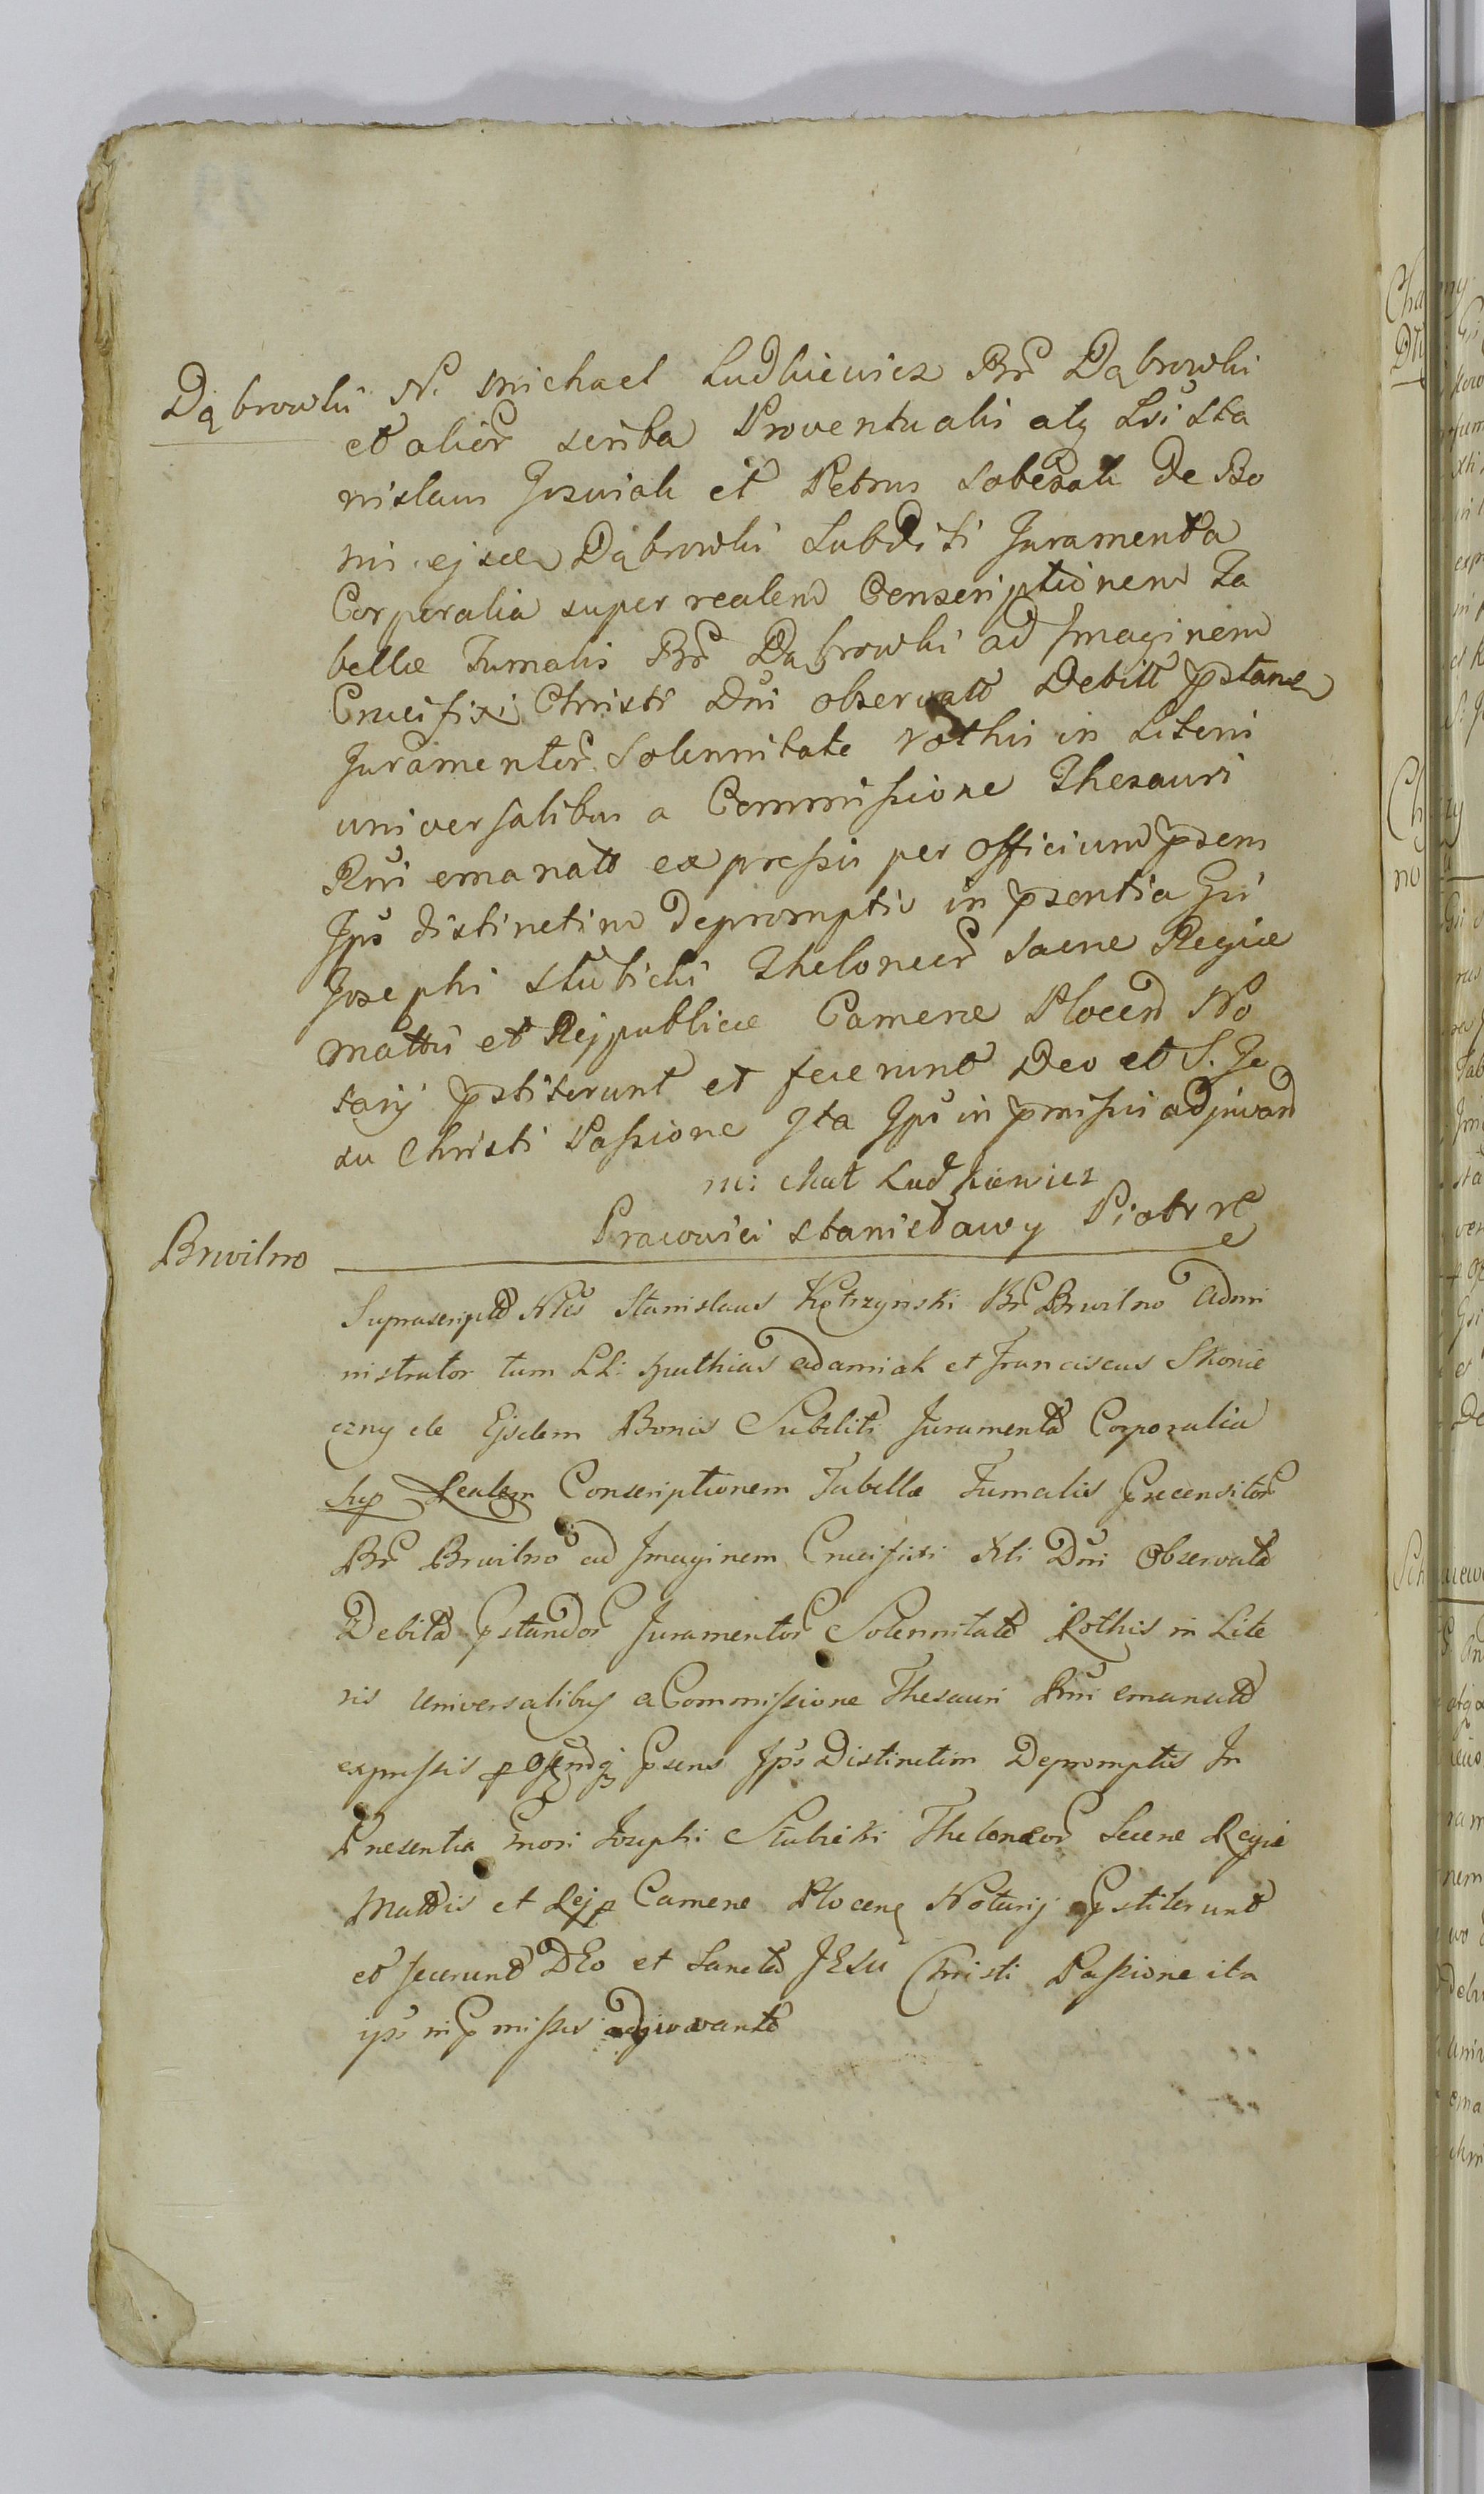 Dąbrowki N. Michael Ludkiewicz Br Dąbrowki
et alior scriba Proventualis atq Lsi Sta
nislaus Joswiak et Petrus Sobczak de Bo
nis ejsdem Dąbrowki Subditi Juramenta
Corporalia super realem Conscriptionem Ta
bellæ Fumalis Br Dąbrowki ad Imaginem
Crucifixi Christi Dni observato Debitt pstan
Juramentor Solennitate rothis in Literis
universalibus a Commissione Thesauri
Rni emanatt expressis per Officium psens
Jps distinctim depromptis in psentia Gsi
Josephi Słubicki Theloneor Sacræ Regiæ
Mattis et Rejpublicæ Cameræ Plocen No
tarij pstiterunt et fecerunt Deo et S. Je
su Christi Passione Ita Jps in pmissis adjuvan
Michał Ludkiewicz
Pracowici Stanisławy Piotr
Brwilno
Suprascript Nlis Stanislaus Kętrzynski Br Brwilno Admi
nistrator tum LL: Mathias Adamiak et Franciscus Skonie
czny de Ejsdem Bonis Subditi Juramenta Corporalia
Sup Realem Conscriptionem Tabellæ Fumalis precensitor
Br Brwilno ad Imaginem Crucifixi Xti Dni Observata
Debita pstandor Juramentor Solennitate Rothis in Lite
ris Universalibus a Commissione Thesauri Rni emanatt
expressis p psens Jps Distinctim Depromptis In
Presentia Josephi Słubicki Theloneor Sacræ Regiæ
Mattis et Rejp Cameræ Plocen Notarij pstiterunt
et fecerunt DEo et Sancta JESu Christi Passione ita
ips in pmissis adjuvante